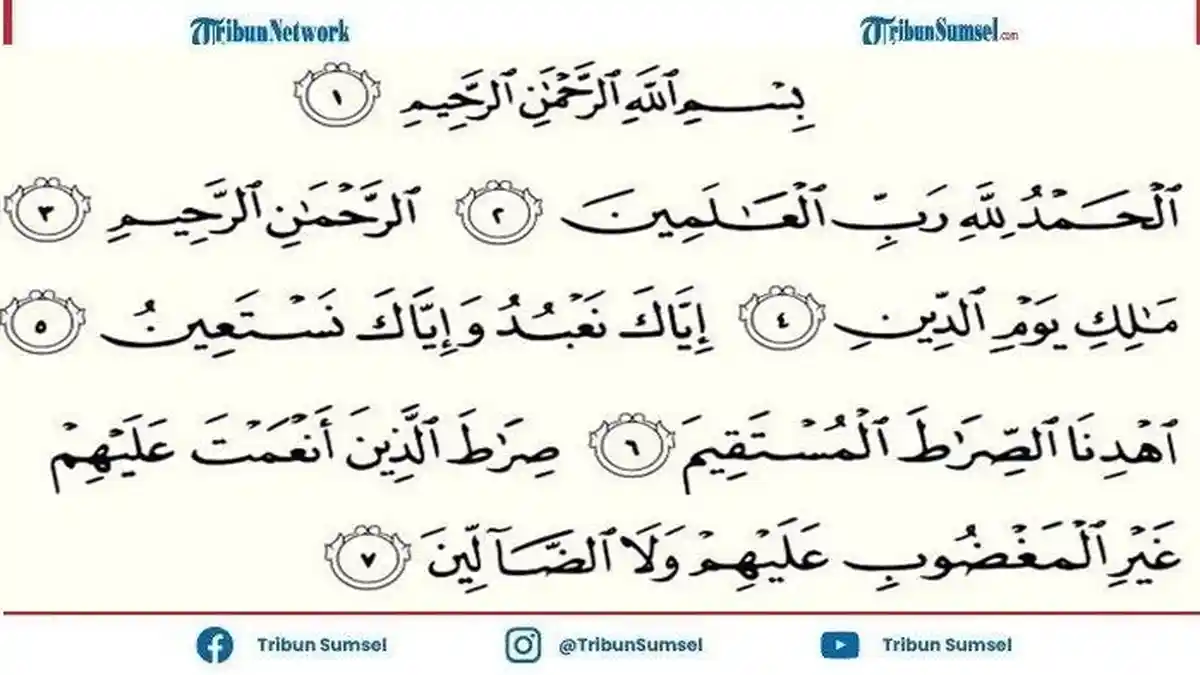 TribunNetwork TribunSumsel.com
بِسْمِ ٱللَّهِ ٱلرَّحْمَٰنِ ٱلرَّحِيمِ ١
ٱلْحَمْدُ لِلَّهِ رَبِّ ٱلْعَٰلَمِينَ ٢ ٱلرَّحْمَٰنِ ٱلرَّحِيمِ ٣
مَٰلِكِ يَوْمِ ٱلدِّينِ ٤ إِيَّاكَ نَعْبُدُ وَإِيَّاكَ نَسْتَعِينُ ٥
ٱهْدِنَا ٱلصِّرَٰطَ ٱلْمُسْتَقِيمَ ٦ صِرَٰطَ ٱلَّذِينَ أَنْعَمْتَ عَلَيْهِمْ
غَيْرِ ٱلْمَغْضُوبِ عَلَيْهِمْ وَلَا ٱلضَّآلِّينَ ٧
Tribun Sumsel @TribunSumsel Tribun Sumsel